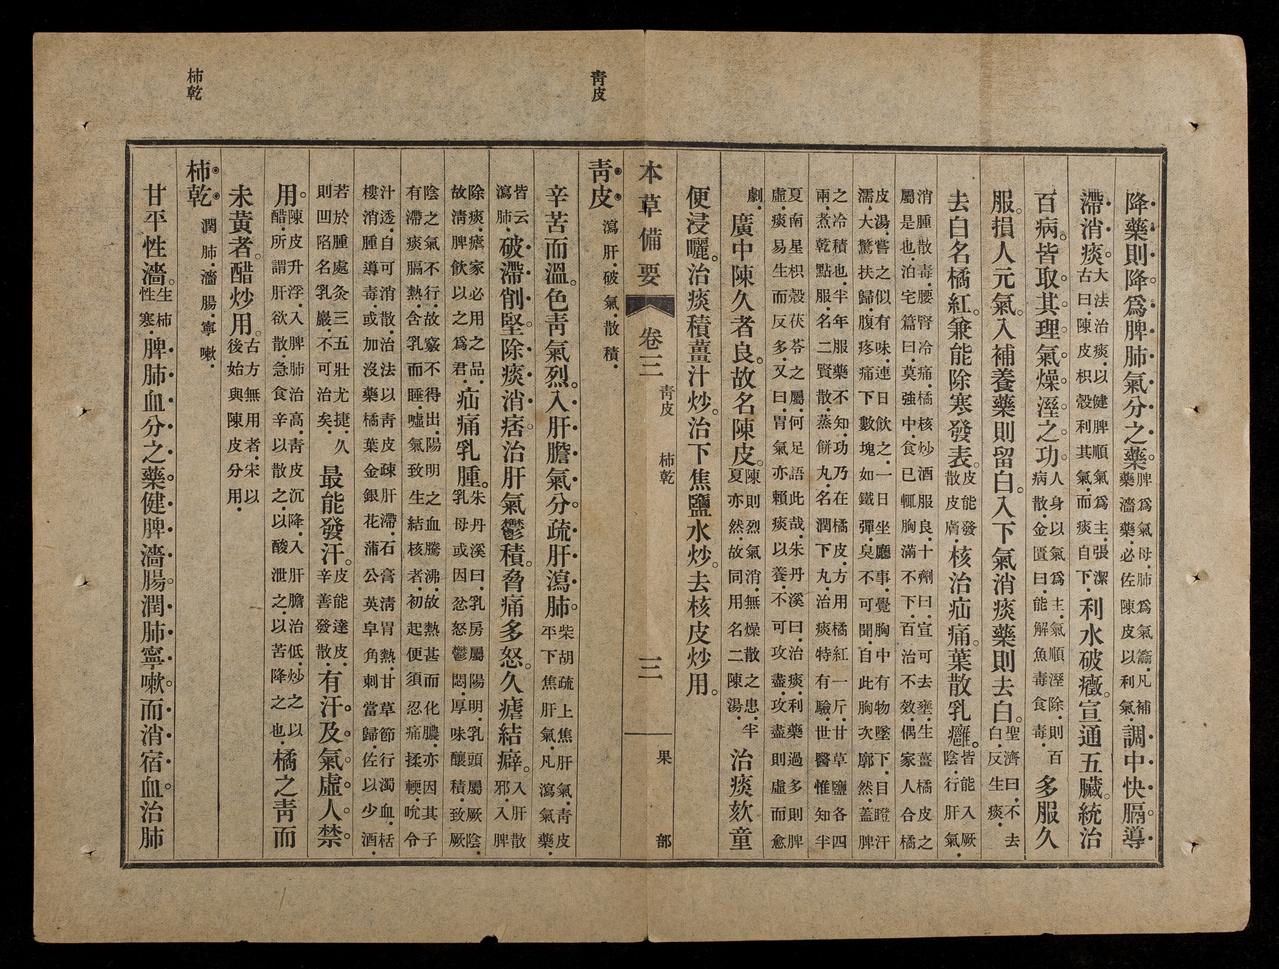 降藥則降爲脾肺氣分之藥脾爲氣母肺爲氣籥凡補藥濇藥必佐陳皮以利氣調中快膈導
滯消痰大法治痰以健脾順氣爲主張潔古曰陳皮枳殼利其氣而痰自下利水破癥宣通五臟統治
百病皆取其理氣燥溼之功人身以氣爲主氣順溼除則百病散金匱曰能解魚毒食毒多服久
服損人元氣入補養藥則留白入下氣消痰藥則去白聖濟曰不去白反生痰
去白名橘紅兼能除寒發表皮能發散皮膚核治疝痛葉散乳癰皆能入厥陰行肝氣
消腫散毒腰腎冷痛橘核炒酒服良十劑曰宣可去壅生薑橘皮之
屬是也泊宅篇曰莫強中食已輒胸滿不下百治不效偶家人合橘
皮湯嘗之似有味連日飲之一日坐廳事覺胸中有物墜下目瞪汗
濡大驚扶歸腹疼痛下數塊如鐵彈臭不可聞自此胸次廓然蓋脾
之冷積也半年服藥不知功乃在橘皮方用橘紅一斤甘草鹽各四
兩煮乾點服名二賢散蒸餅丸名潤下丸治痰特有驗世醫惟知半
夏南星枳殼茯苓之屬何足語此哉朱丹溪曰治痰利藥過多則脾
虛痰易生而反多又曰胃氣亦賴痰以養不可攻盡攻盡則虛而愈
劇廣中陳久者良故名陳皮陳則烈氣消無燥散之患半夏亦然故同用名二陳湯治痰欬童
便浸曬治痰積薑汁炒治下焦鹽水炒去核皮炒用
本草備要
卷三
青皮
柿乾
三
果部
青皮
青皮瀉肝破氣散積
辛苦而溫色青氣烈入肝膽氣分疏肝瀉肺柴胡疏上焦肝氣青皮平下焦肝氣凡瀉氣藥
皆云瀉肺破滯削堅除痰消痞治肝氣鬱積脅痛多怒久瘧結癖入肝散邪入脾
除痰瘧家必用之品故清脾飲以之爲君疝痛乳腫朱丹溪曰乳房屬陽明乳頭屬厥陰乳母或因忿怒鬱悶厚味釀積致厥
陰之氣不行故竅不得出陽明之血騰沸故熱甚而化膿亦因其子
有滯痰膈熱含乳而睡噓氣致生結核者初起便須忍痛揉輭吮令
汁透自可消散治法以青皮疎肝滯石膏清胃熱甘草節行濁血栝
樓消腫導毒或加沒藥橘葉金銀花蒲公英皁角刺當歸佐以少酒
若於腫處灸三五壯尤捷久則凹陷名乳巖不可治矣最能發汗皮能達皮辛善發散有汗及氣虛人禁
用陳皮升浮入脾肺治高青皮沉降入肝膽治低炒之以醋所謂肝欲散急食辛以散之以酸泄之以苦降之也橘之青而
未黃者醋炒用古方無用者宋以後始與陳皮分用
柿乾
柿乾潤肺濇腸寧嗽
甘平性濇生柿性寒脾肺血分之藥健脾濇腸潤肺寧嗽而消宿血治肺